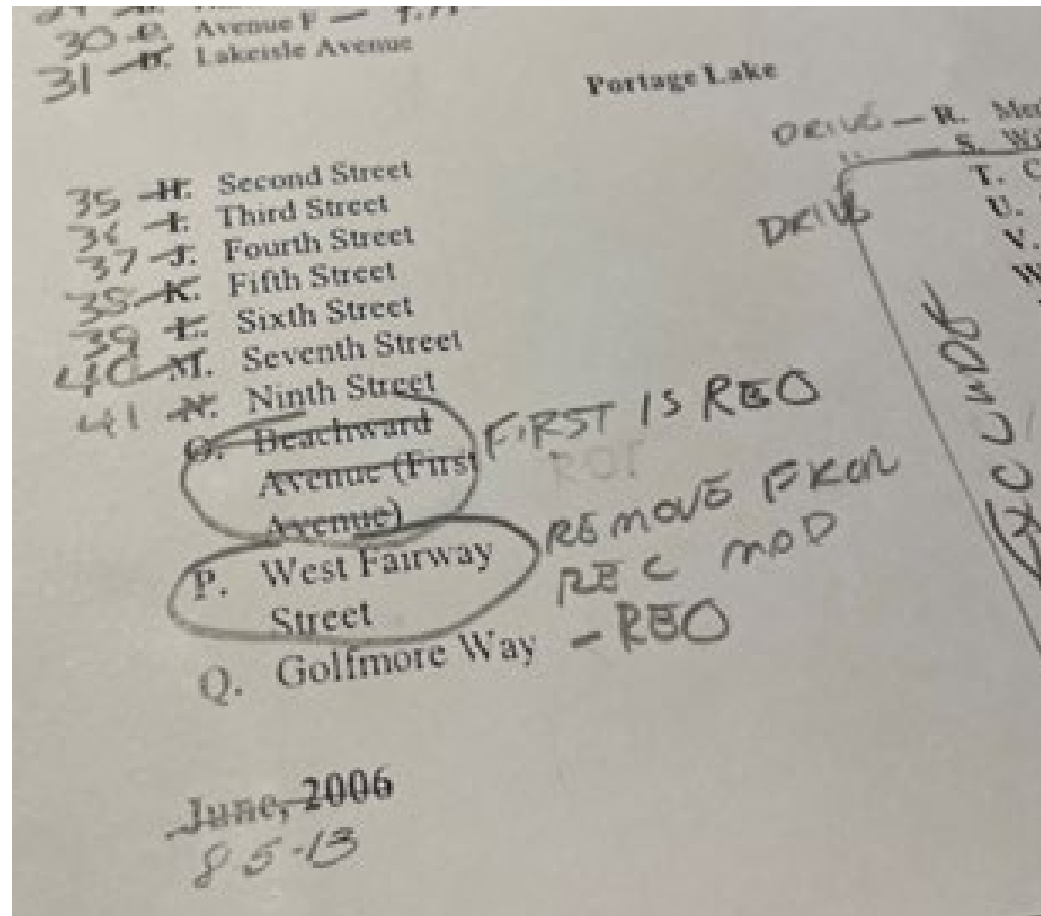 30 Avenue F —
31 D. Lakeisle Avenue
Portage Lake
DRIVE — R.
— S.
T. C
U.
V.
DRIVE
35 H. Second Street
36 I. Third Street
37 J. Fourth Street
38 K. Fifth Street
39 L. Sixth Street
40 M. Seventh Street
41 N. Ninth Street
O. Beachward
Avenue (First
Avenue)
FIRST IS REO
P. West Fairway
Street
REMOVE FROM
REC MOD
Q. Golfmore Way - REO
June, 2006
8-5-13